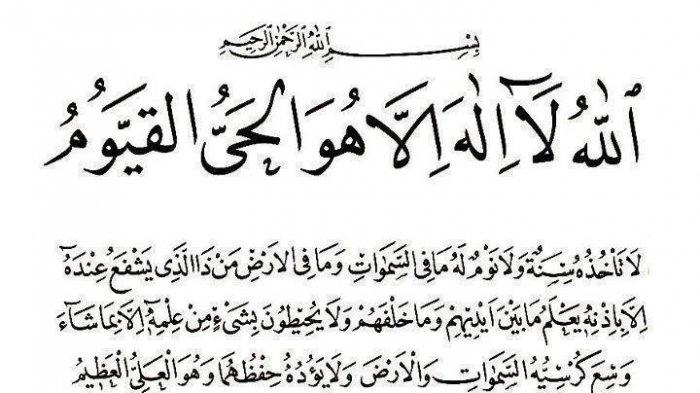 بِسْمِ اللهِ الرَّحْمٰنِ الرَّحِيمِ
اَللهُ لَآ اِلٰهَ اِلَّا هُوَ الْحَىُّ الْقَيُّومُ
لَا تَأْخُذُهُ سِنَةٌ وَلَا نَوْمٌ لَهُ مَا فِى السَّمٰوَاتِ وَمَا فِى الْاَرْضِ مَنْ ذَا الَّذِى يَشْفَعُ عِنْدَهُٓ
اِلَّا بِاِذْنِهِ يَعْلَمُ مَا بَيْنَ اَيْدِيهِمْ وَمَا خَلْفَهُمْ وَلَا يُحِيطُونَ بِشَىْءٍ مِنْ عِلْمِهِٓ اِلَّا بِمَا شَٓاءَ
وَسِعَ كُرْسِيُّهُ السَّمٰوَاتِ وَالْاَرْضَ وَلَا يَؤُدُهُ حِفْظُهُمَا وَهُوَ الْعَلِىُّ الْعَظِيمُ